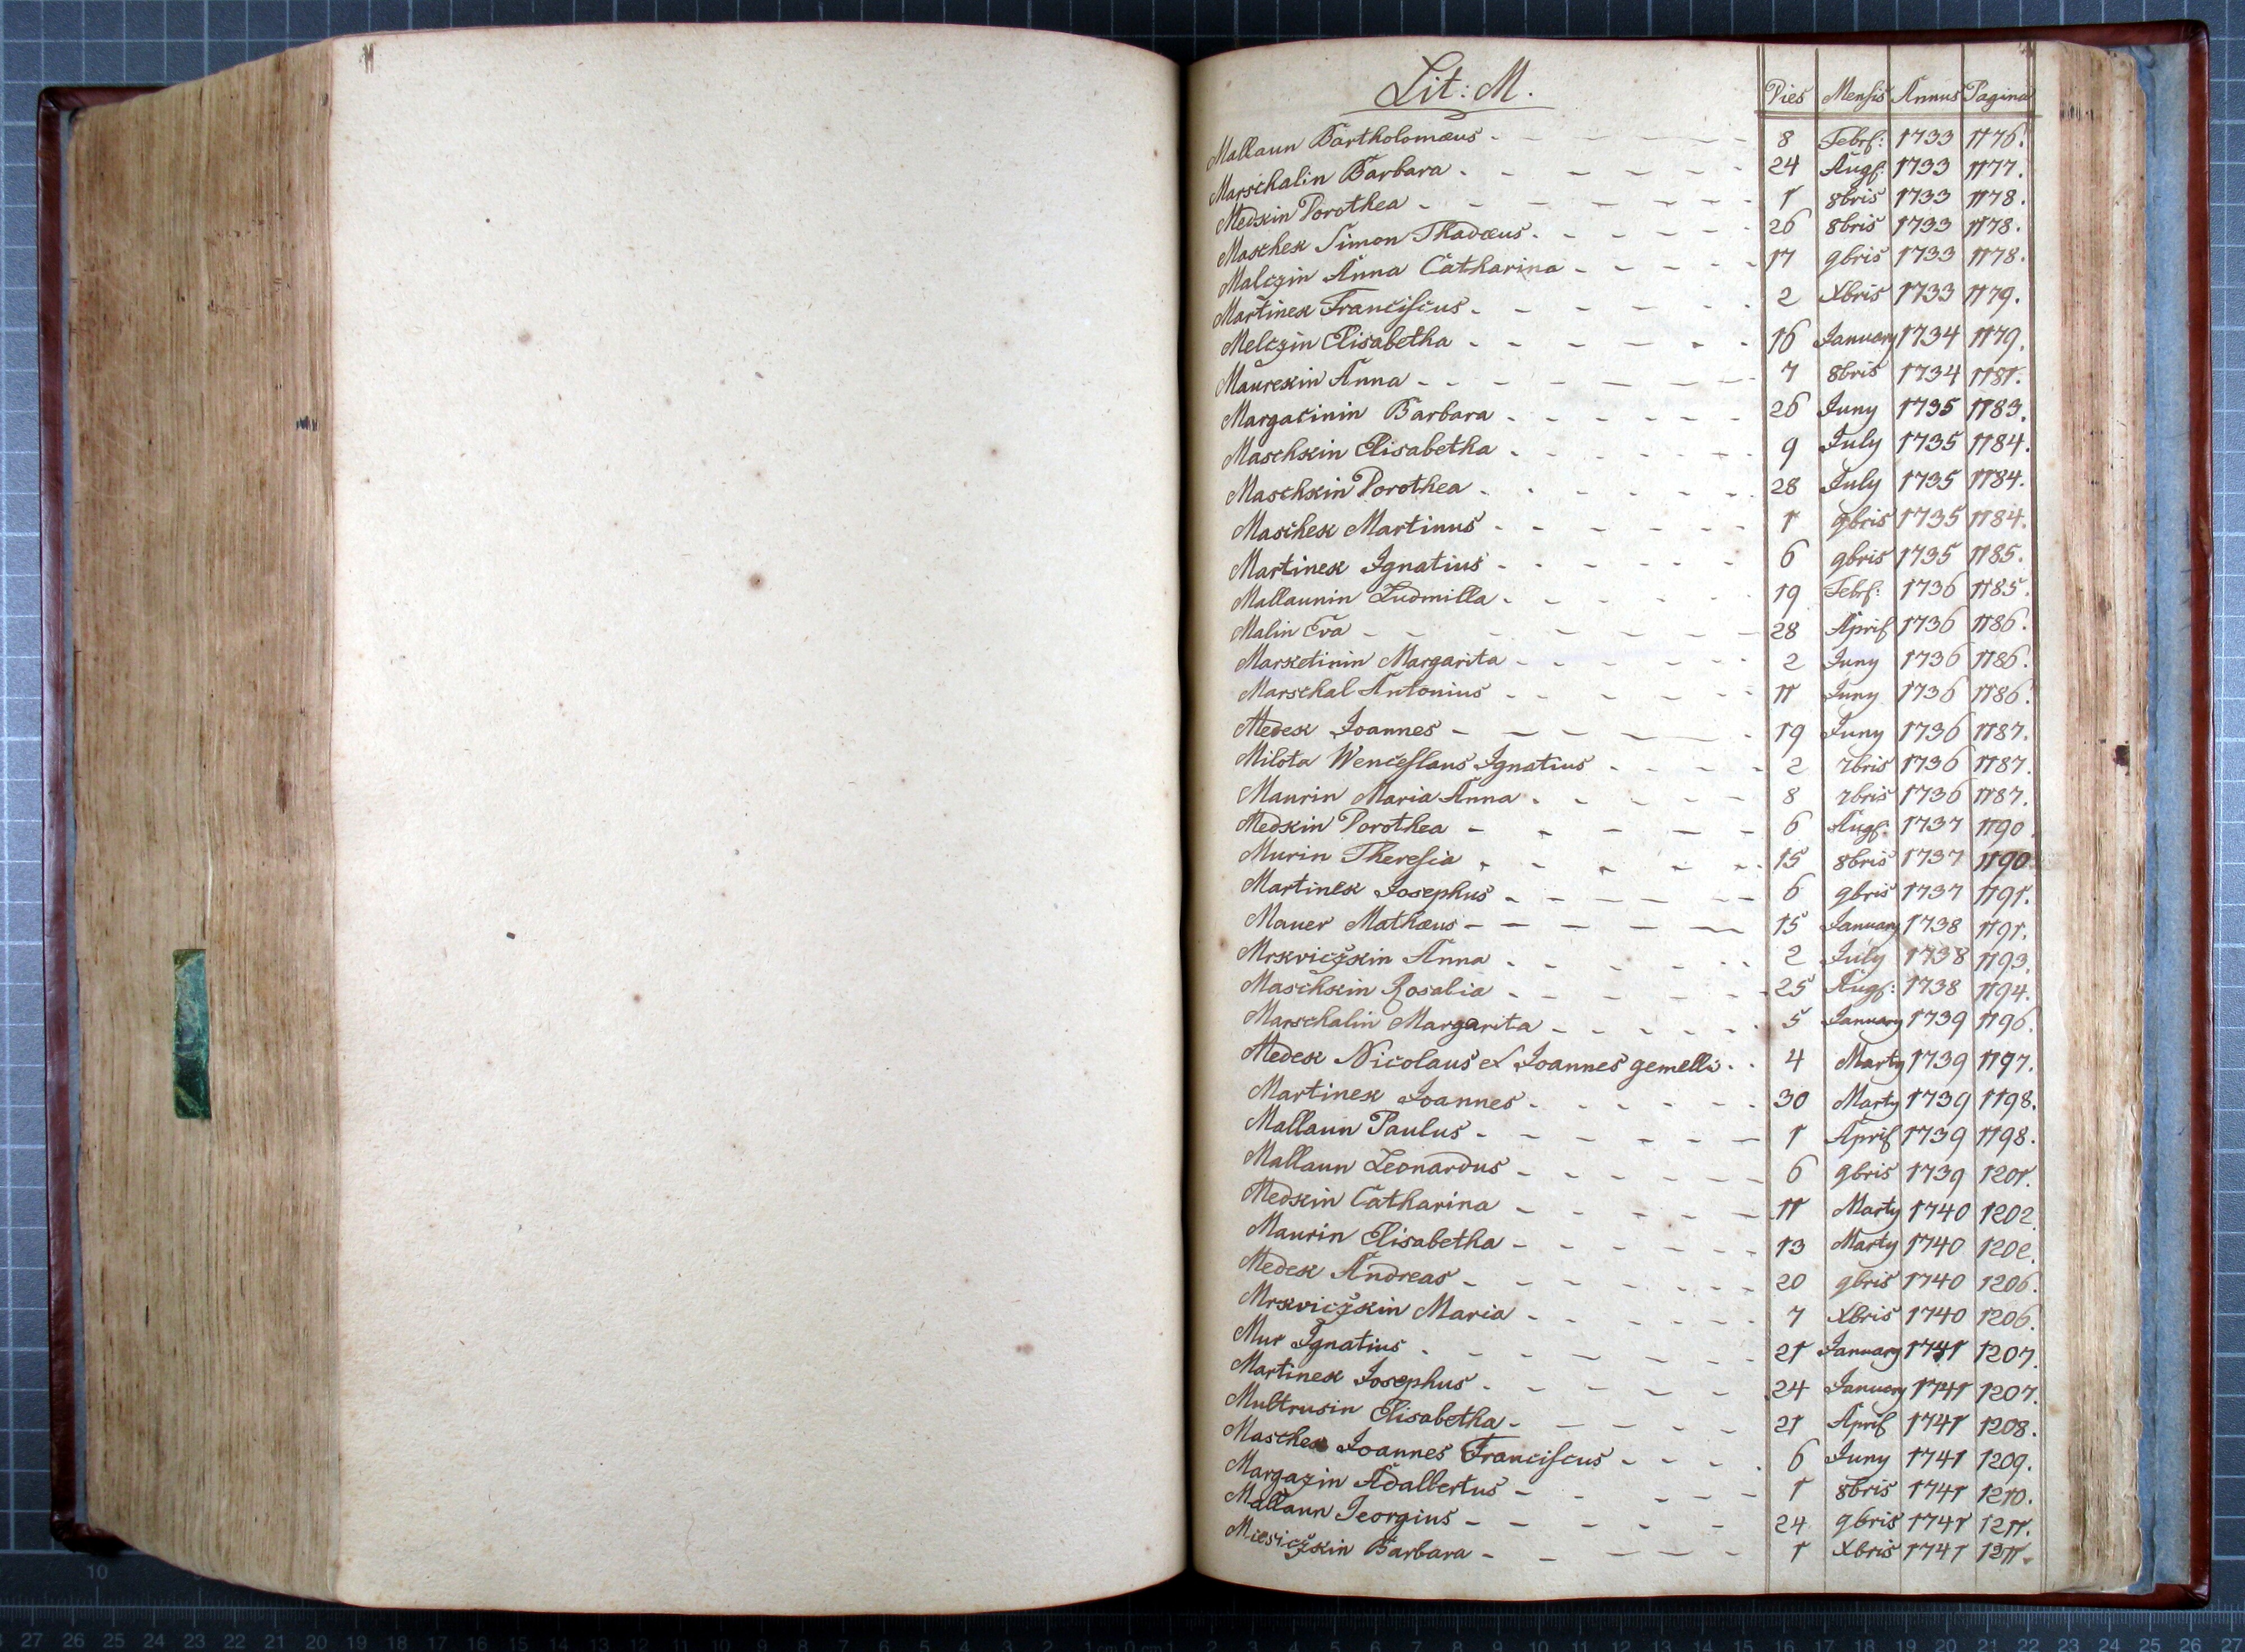 Lit: M.
Dies Mensis Annus Pagina
Mallaun Bartholomæus - 8 Febr: 1733 1176.
Marschalin Barbara - 24 Aug: 1733 1177.
Medkin Dorothea - 1 8bris 1733 1178.
Maschek Simon Thadæus - 26 8bris 1733 1178.
Malczin Anna Catharina - 17 9bris 1733 1178.
Martinek Franciscus - 2 Xbris 1733 1179.
Melczin Elisabetha - 16 January 1734 1179.
Maurekin Anna - 7 8bris 1734 1181.
Margacinin Barbara - 26 Juny 1735 1183.
Maschkin Elisabetha - 9 July 1735 1184.
Maschkin Dorothea - 28 July 1735 1184.
Maschek Martinus - 1 9bris 1735 1184.
Martinek Ignatius - 6 9bris 1735 1185.
Mallaunin Ludmilla - 19 Febr: 1736 1185.
Malin Eva - 28 April 1736 1186.
Marketinin Margarita - 2 Juny 1736 1186.
Marschal Antonius - 11 Juny 1736 1186.
Medek Joannes - 19 Juny 1736 1187.
Milota Wenceslaus Ignatius - 2 7bris 1736 1187.
Maurin Maria Anna - 8 7bris 1736 1187.
Medkin Dorothea - 6 Aug: 1737 1190.
Murin Theresia - 15 8bris 1737 1190.
Martinek Josephus - 6 9bris 1737 1191.
Mauer Mathæus - 15 January 1738 1191.
Mrkviczkin Anna - 2 July 1738 1193.
Maschkin Rosalia - 25 Aug: 1738 1194.
Marschalin Margarita - 5 January 1739 1196.
Medek Nicolaus et Joannes gemelli - 4 Marty 1739 1197.
Martinek Joannes - 30 Marty 1739 1198.
Mallaun Paulus - 1 April 1739 1198.
Mallaun Leonardus - 6 9bris 1739 1201.
Medkin Catharina - 11 Marty 1740 1202.
Maurin Elisabetha - 13 Marty 1740 1202.
Medek Andreas - 20 9bris 1740 1206.
Mrkviczkin Maria - 7 Xbris 1740 1206.
Mur Ignatius - 21 January 1741 1207.
Martinek Josephus - 24 January 1741 1207.
Multrusin Elisabetha - 21 April 1741 1208.
Maschek Joannes Franciscus - 6 Juny 1741 1209.
Margazin Adalbertus - 1 8bris 1741 1210.
Mallaun Georgius - 24 9bris 1741 1211.
Miesiczkin Barbara - 1 Xbris 1741 1211.